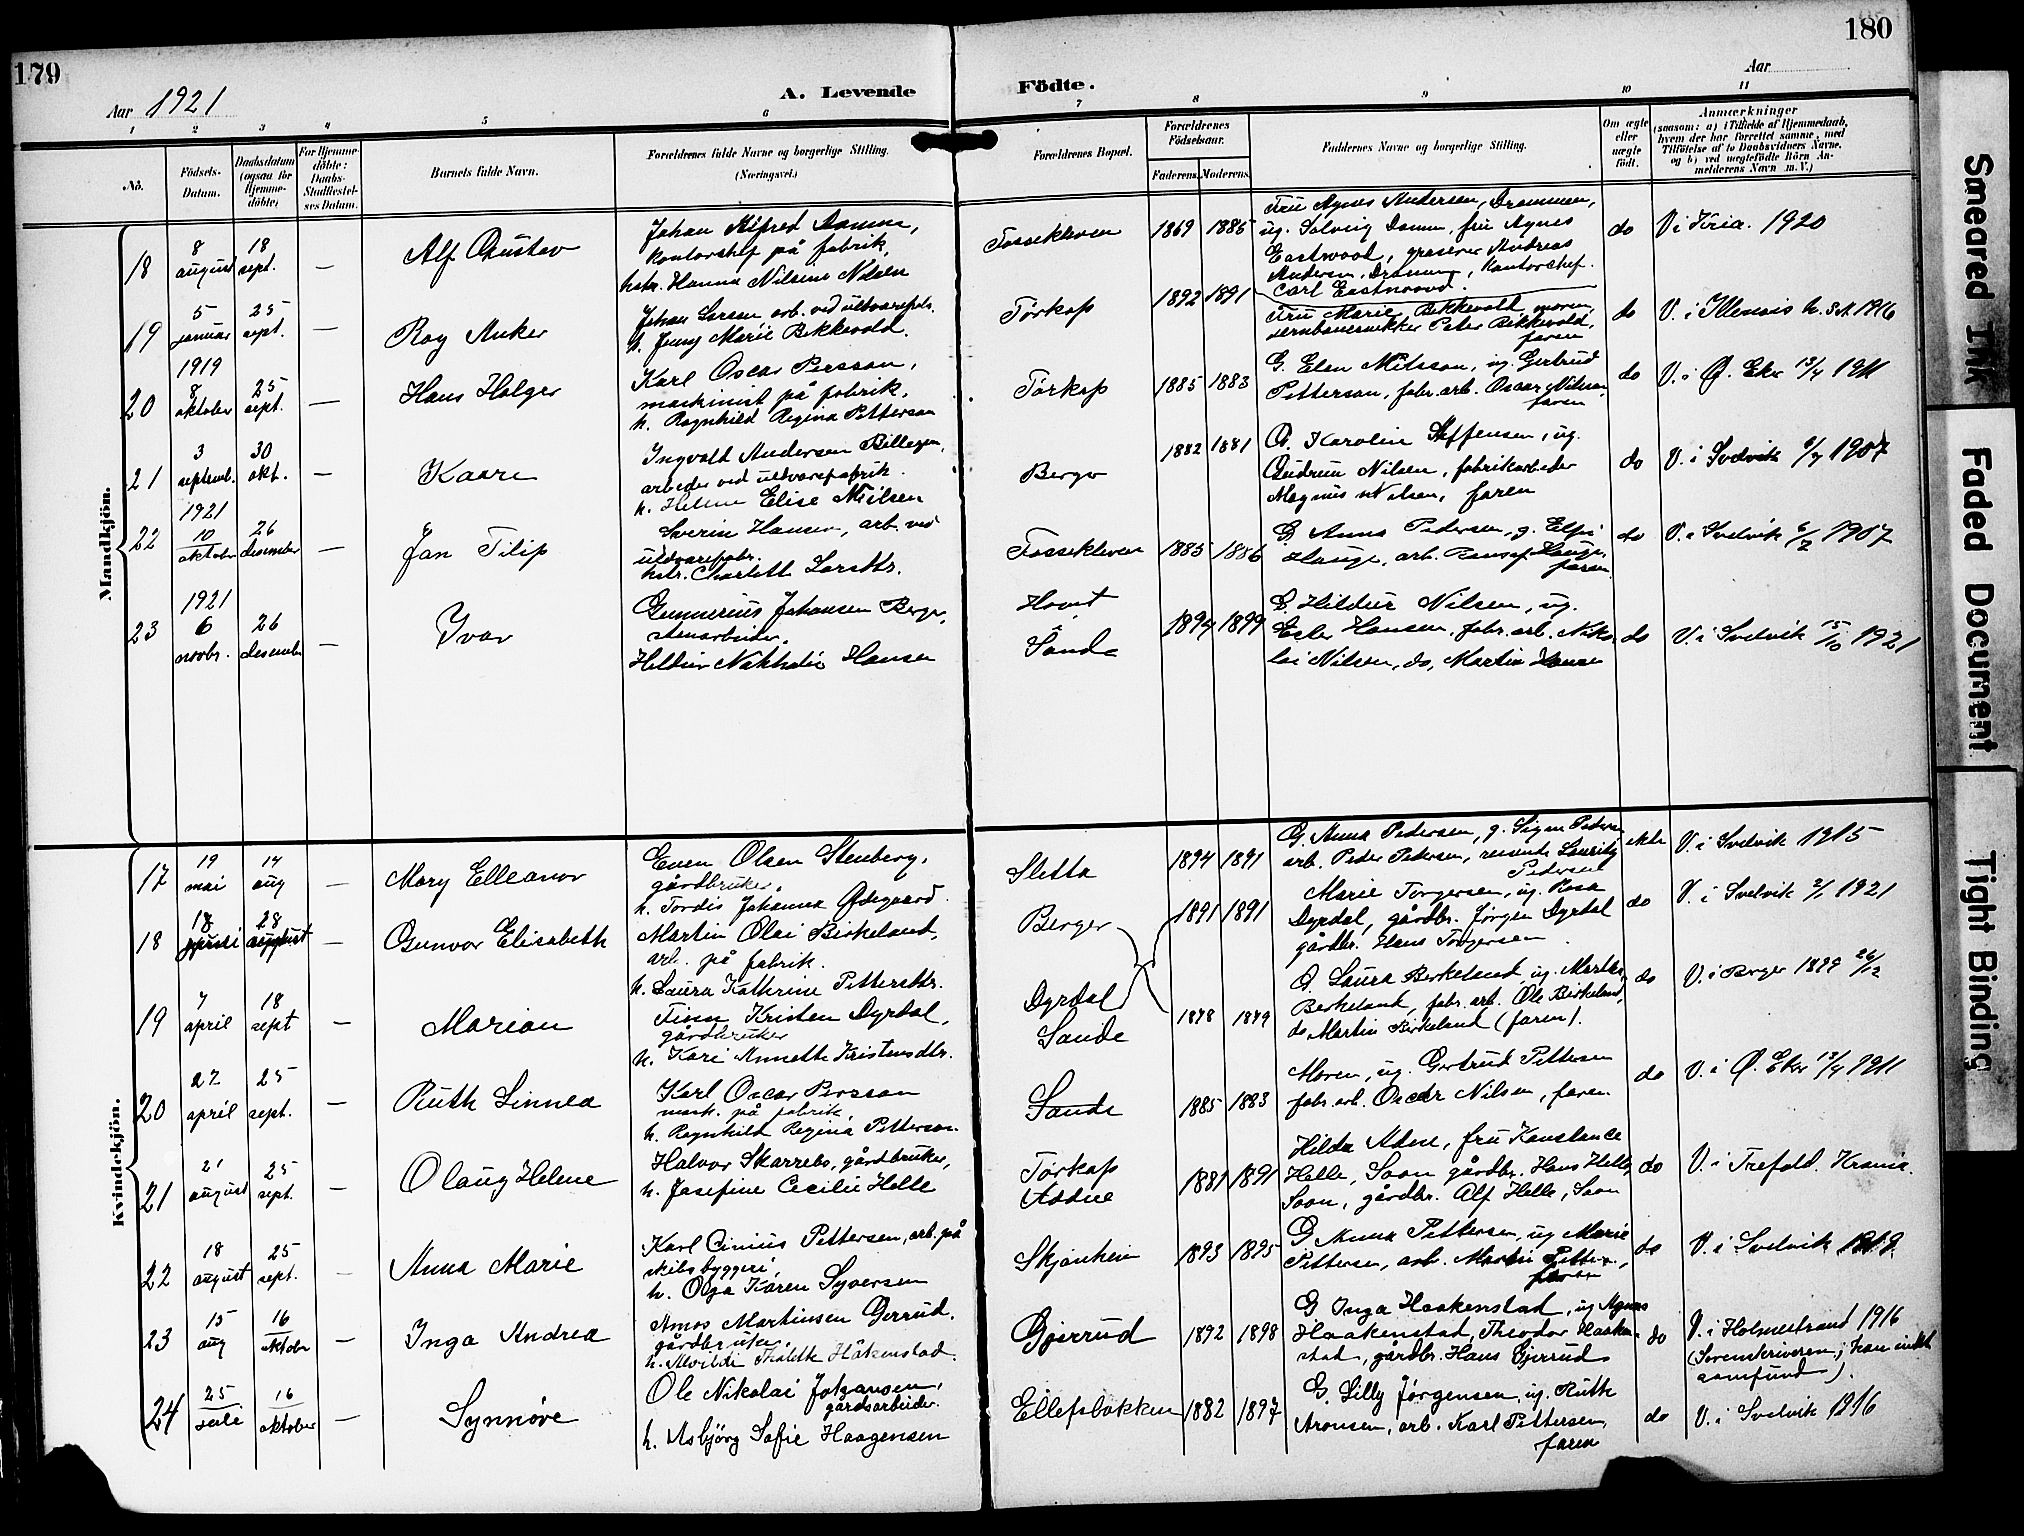 179
180
Aar 1921
A. Levende
Födte.
Aar
1 2 3 4 5 6 7 8 9 10 11
No.
Födsels-
Datum.
Daabsdatum
(ogsaa for
Hjemme-
döbte)
For Hjemme-
döbte:
Daabs-
Stadfæstel-
ses Datum.
Barnets fulde Navn.
Forældrenes fulde Navne og borgerlige Stilling.
(Næringsvei.)
Forældrenes Bopæl.
Forældrenes
Födselsaar.
Faderens. Moderens.
Faddernes Navne og borgerlige Stilling.
Om ægte
eller
uægte
födt.
Anmærkninger
(saasom: a) i Tilfælde af Hjemmedaab,
hvem der har forrettet samme, med
Tilföielse af to Daabsvidners Navne,
og b) ved uægtefödte Börn An-
melderens Navn m. V.)
Mandkjön.
18
8
august
18
sept.
—
Alf Gustav
Johan Alfred
kontorchef på fabrik,
hstr. Hanna Nilsine Nilsen
Fossekleven
1869 1885
Fru Agnes Andersen, Drammen,
ug. Solveig fru Agnes
Eastwood, Andreas
Andersen, Kontorchef
Carl Eastwood.
do
V i 1920
19
5
januar
25
sept.
—
Roy Anker
Johan Larsen arb. ved
h. Jenny Marie Bekkevold.
Tørkop
1892 1891
Fru Marie Bekkevold, moren
Peter Bekkevold,
faren
do
V. i 1916
1919
20
8
oktober
25
sept.
—
Hans Holger
Karl Oscar Persson,
maskinist på fabrik,
h. Ragnhild Regina Petterson
Tørkop
1885 1883
G. Elen ug. Gertrud
Petterson, fabr. arb. Oscar Nilsson,
faren
do
V. i Ø. Eker 13/4 1911
21
3
septemb.
30
okt.
—
Kaare
Ingvald Andersen
arbeider ved uldvarefabrik.
h. Helene Elise Nielsen
Berger
1882 1881
G. Karolin Steffensen, ug.
Gudrun Nilsen, fabrikarbeider
Magnus Nilsen, faren
do
V. i Svelvik 1907
1921
22
10
oktober
26
desember
—
Jan Filip
Severin Hansen, arb ved
uldvarefabr.
hstr. Charlotte Larsdtr.
Fossekleven
1885 1886
G Anna Pedersen, g.
Hauge, arb. Hauge,
faren
do
V. i Svelvik 1907
1921
23
6
novbr.
26
desember
—
Ivar
Gunnerius Johansen Berger,
stenarbeider.
Hildur Nathalie Hansen
Sande
1894 1899
G. Hildur Nilsen, ug.
Ester Hansen, fabr. arb. Niko-
lai Nilsen, do, Martin Hansen
do
V. i Svelvik 15/10 1921
Kvindekjön.
17
19
mai
14
aug
—
Mary Elleanor
Even Olsen Stenberg,
gårdbruker,
h. Tordis Johanna Ødegaard.
Sletta
1894 1891
G. Anna Pedersen, g. Signe Pedersen
arb. Peder Pedersen, Lauritz
Pedersen
ekte
V. i Svelvik 1915
18
18
juni
28
august
—
Gunvor Elisabeth
Martin Olai Birkeland,
arb. på fabrik.
h. Laura Kathrine Pettersdtr.
Berger
1891 1891
Marie Torgersen, ug. Rosa
Dyrdal, gårdbr. Jørgen Dyrdal
gårdbr. Hans Torgersen.
do
V. i Svelvik 2/1 1921
19
7
april
18
sept
—
Marion
Finn Kristen Dyrdal,
gårdbruker
h. Kari Annette Kristensdtr.
Dyrdal
Sande
1878 1879
G. Laura Birkeland, ug. Martha
Birkeland, fabr. arb. Ole Birkeland,
do Martin Birkeland (faren).
do
V. i Berger 1899 26/12
20
27
april
25
sept.
—
Ruth Linnea
Karl Oscar Persson
mask. på fabrik,
h. Ragnhild Regina Petterson.
Sande
1885 1883
Moren, ug. Gertrud Pettersen
fabr. arb. Oscar Nilsen, faren
do
V. i Ø. Eker 13/4 1911
21
21
august
25
sept.
—
Olaug Helene
Halvor Skarrebo, gårdbruker,
h. Josefine Cecilie Helle
Tørkop
Adne
1881 1891
Hilda Adne, fru Konstance
Helle, Soon gårdbr. Hans Helle,
Soon, gårdbr. Alf Helle, Soon
do
V. i Trefold. Krania.
22
18
august
25
sept.
—
Anna Marie
Karl Pettersen, arb. på
skibsbyggeri,
h. Olga Karen Syversen
Skjønheim
1893 1895
G Anna Pettersen, ug Marie
Pettersen, arb. Martin
faren
do
V. i Svelvik
23
15
aug
16
oktober
—
Inga Andrea
Amos Martinsen Gerrud,
gårdbruker,
h. Håkenstad.
Gjerrud
1892 1898
G Inga Haakenstad, ug Agnes
Haakenstad, Theodor Haaken-
stad, gårdbr. Hans Gjerrud
do
V. i Holmestrand 1916
(Sorenskriveren;
samfund).
24
25
juli
16
oktober
—
Synnøve
Ole Nikolai Johansen,
gårdsarbeider.
h. Asbjörg Sofie Haagensen
Ellefsbakken
1882 1897
G. Lilly Jørgensen, ug. Ruth
Aronsen, arb. Karl Pettersen,
faren
do
V. i Svelvik 1916
Smeared Ink
Faded Document
Tight Binding